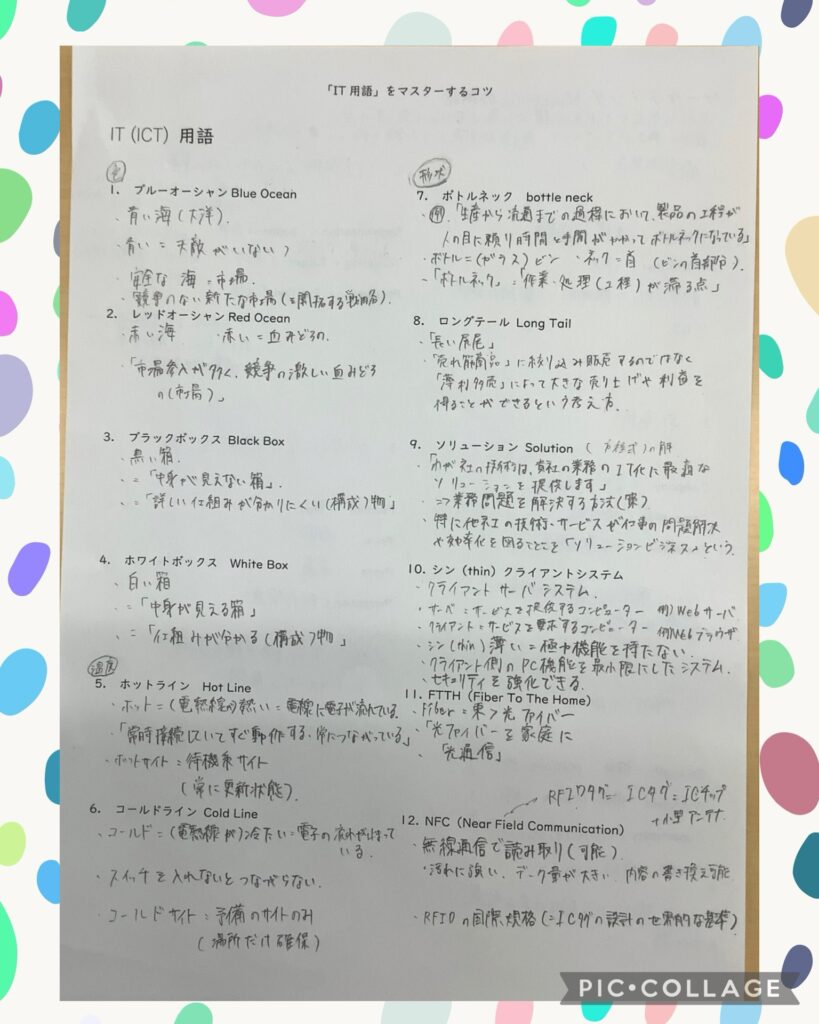 「IT 用語」をマスターするコツ
IT (ICT) 用語
色
1. ブルーオーシャン Blue Ocean
・青い海(大洋).
・青い = 天敵がいない
・安全な 海 = 市場.
・競争のない 新たな市場(を開拓する戦略).
2. レッドオーシャン Red Ocean
・赤い海 ・赤い = 血みどろの.
・「市場参入が多く、競争の激しい血みどろ
の(市場)」
3. ブラックボックス Black Box
・黒い箱.
・=「中身が見えない箱」.
・=「詳しい仕組みが分かりにくい(構成)物」
4. ホワイトボックス White Box
・白い箱
・=「中身が見える箱」
・=「仕組みが分かる(構成)物」
温度
5. ホットライン Hot Line
・ホット=(電熱線が)熱い = 電線に電子が流れている.
・「常時接続していてすぐ動作する・常につながっている」
・ホットサイト = 待機系サイト
(常に更新状態).
6. コールドライン Cold Line
・コールド=(電熱線が)冷たい = 電子の流れが止まって
いる.
・スイッチを入れないとつながらない.
・コールドサイト = 予備のサイトのみ
(場所だけ確保)
形状
7. ボトルネック bottle neck
・例.「生産から流通までの過程において、製品の工程が
人の目に頼り時間と手間がかかってボトルネックになっている」
・ボトル=(ガラス)ビン ・ネック=首 (ビンの首部分).
・「ボトルネック」=「作業・処理(工程)が滞る点」
8. ロングテール Long Tail
・「長い尻尾」
・「売れ筋商品」に絞り込み販売するのではなく
「薄利多売」によって大きな売り上げや利益を
得ることができるという考え方.
9. ソリューション Solution (方程式)の解
・「わが社の技術は、貴社の業務のIT化に最適な
ソリューションを提供します」
⇒業務問題を解決する方法(策).
・特に他社の技術・サービスが仕事の問題解決
や効率化を図ることを「ソリューションビジネス」という.
10. シン(thin)クライアントシステム
・クライアント サーバシステム.
・サーバ=サービスを提供するコンピューター 例)Webサーバ
・クライアント=サービスを要求するコンピューター 例)Webブラウザ
・シン(thin)薄い=極力機能を持たない.
・クライアント側のPC機能を最小限にしたシステム.
・セキュリティを強化できる.
11. FTTH(Fiber To The Home)
・Fiber = 束 > 光ファイバー
・「光ファイバーを家庭に
「光通信」
RFIDタグ= ICタグ=ICチップ
+小型アンテナ
12. NFC(Near Field Communication)
・無線通信で読み取り(可能).
・汚れに強い. データ量が大きい. 内容の書き換え可能
・RFIDの国際規格(=ICタグの設計の世界的な基準)
PIC•COLLAGE